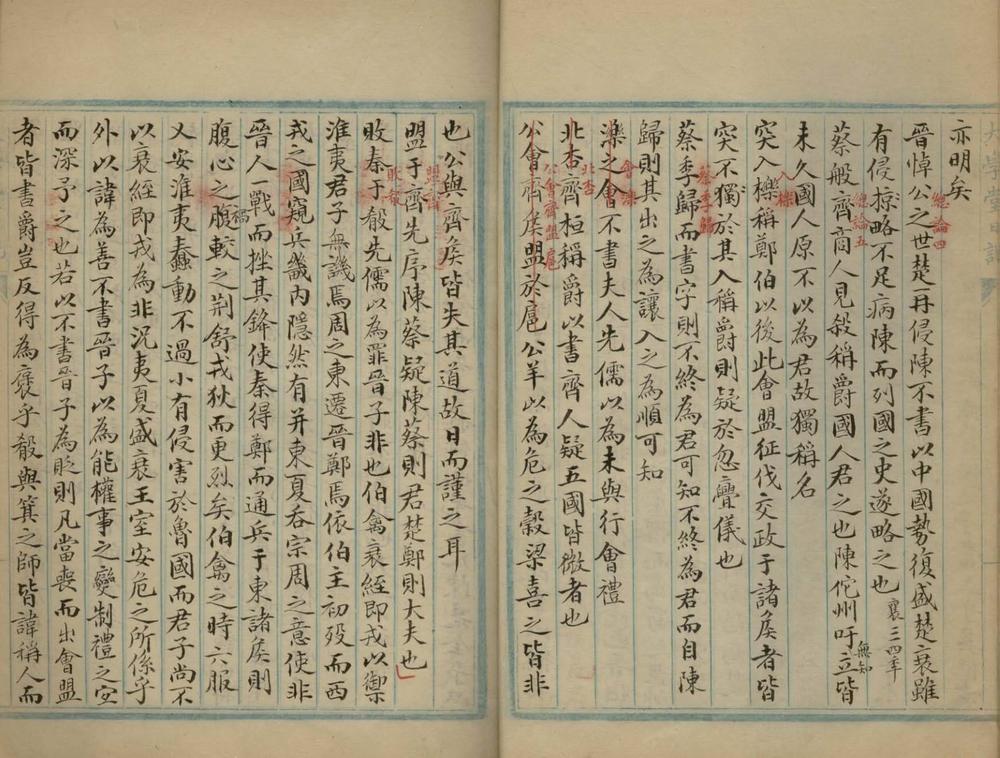 亦明矣
晉悼公之世楚再侵陳不書以中國勢復盛楚衰雖
總論四
有侵掠略不足病陳而列國之史遂略之也襄三四年
總論五
蔡般齊商人見殺稱爵國人君之也陳佗州吁無知立皆
未久國人原不以為君故獨稱名
突入櫟稱鄭伯以後此會盟征伐交政于諸矦者皆
入櫟
突不獨於其入稱爵則疑於忽亹儀也
蔡季歸而書字則不終為君可知不終為君而自陳
蔡季歸
歸則其出之為讓入之為順可知
濼之會不書夫人先儒以為未與行會禮
會濼
北杏齊桓稱爵以書齊人疑五國皆微者也
北杏
公會齊矦盟於扈公羊以為危之穀梁喜之皆非
公會齊盟扈
也公與齊矦皆失其道故日而謹之耳
盟于齊先序陳蔡疑陳蔡則君楚鄭則大夫也
盟齊
敗秦于殽先儒以為罪晉子非也伯禽衰絰即戎以禦
敗殽
淮夷君子無譏焉周之東遷晉鄭焉依伯主初歿而西
戎之國窺兵畿內隱然有并東夏吞宗周之意使非
晉人一戰而挫其鋒使秦得鄭而通兵于東諸矦則
腹心之禍較之荆舒戎狄而更烈矣伯禽之時六服
乂安淮夷蠢動不過小有侵害於魯國而君子尚不
以衰絰即戎為非況夷夏盛衰王室安危之所係乎
外以諱為善不書晉子以為能權事之變制禮之宜
而深予之也若以不書晉子為貶則凡當喪而出會盟
者皆書爵豈反得為褒乎殽與箕之師皆諱稱人而